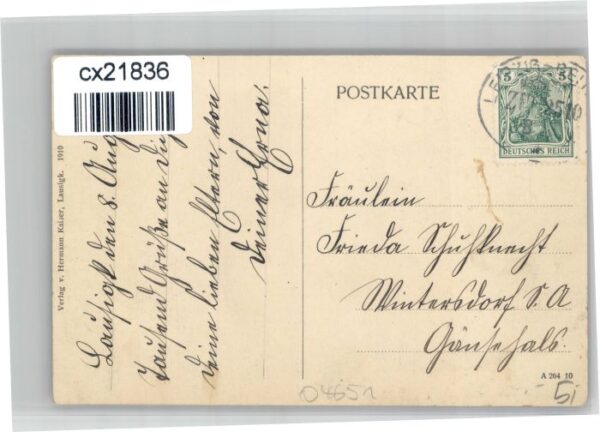 cx21836
POSTKARTE
5 5
DEUTSCHES REICH
Lausigk den 8. Aug
Tausend Grüße an Di
deine lieben Eltern, von
deiner Erna.
Fräulein
Frieda Schuhknecht
Wintersdorf S. A
Gänsehals.
Verlag v. Hermann Kaiser, Lausigk. 1910
A 264 10
04651
5,